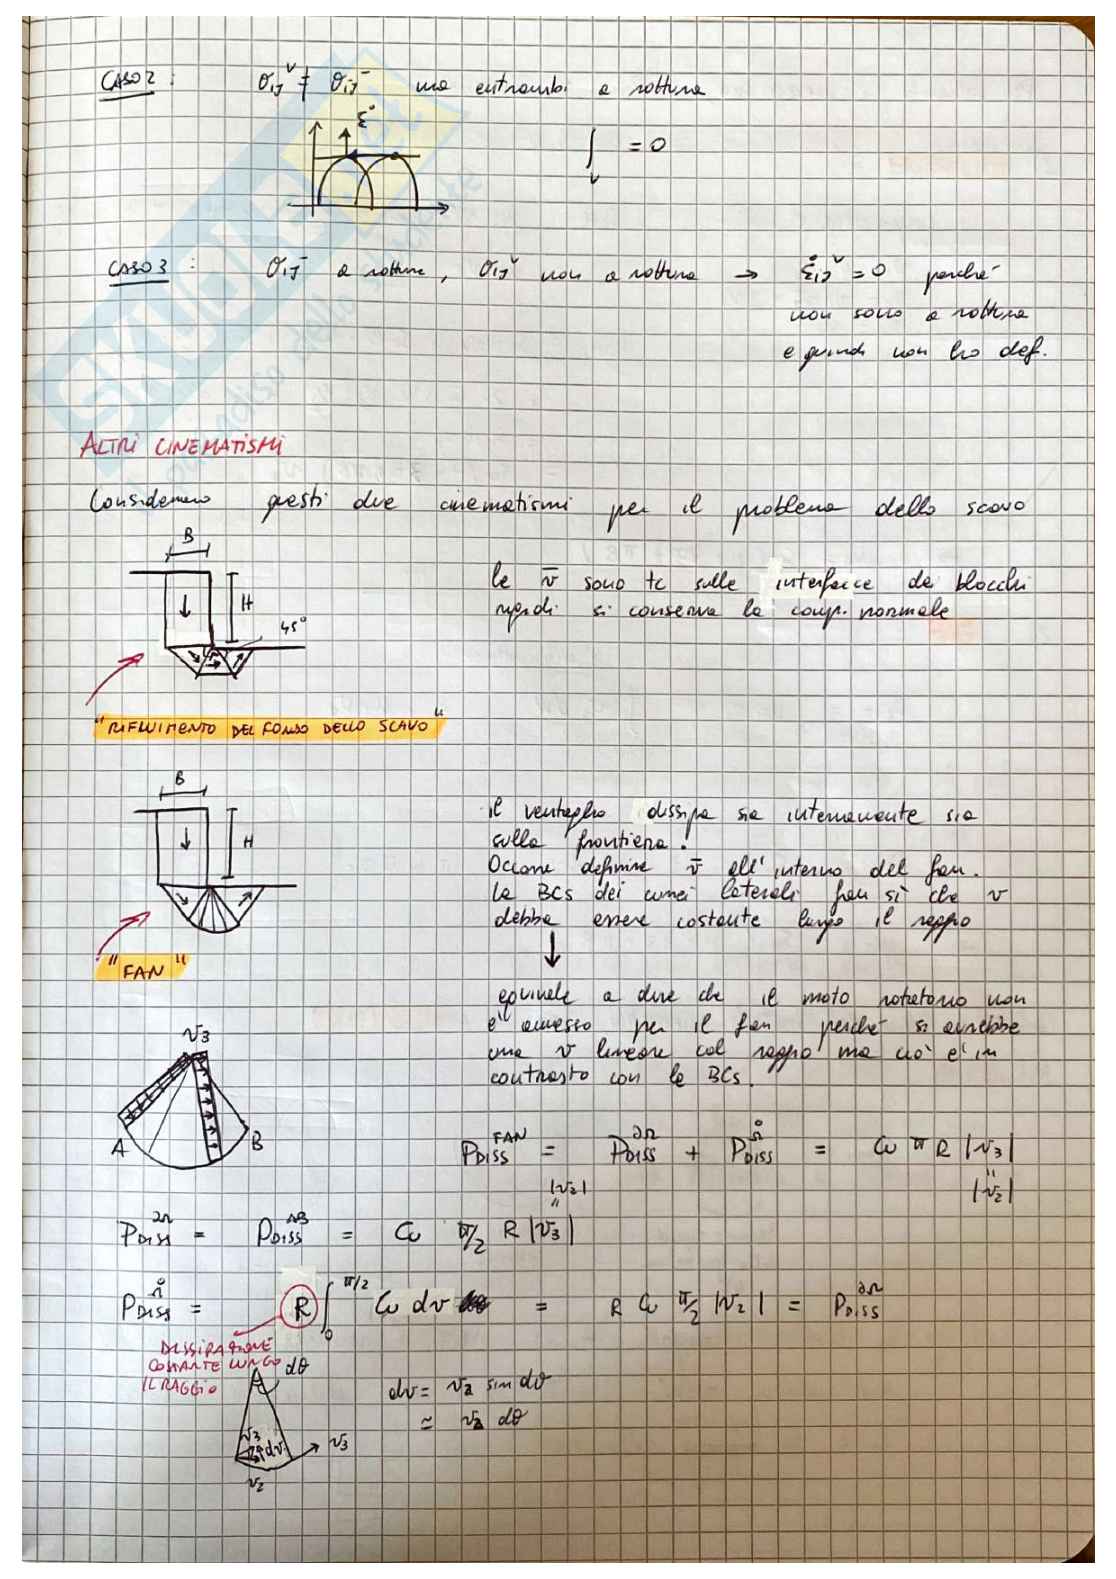 CASO 2 : σij^v ≠ σij^- ma entrambi a rottura
ε̇
∫v = 0
CASO 3 : σij^- a rottura, σij^v non a rottura → ε̇ij^v = 0 perché
non sono a rottura
e quindi non ho def.
ALTRI CINEMATISMI
Consideriamo questi due cinematismi per il problema dello scavo
B
H
45°
le v̄ sono tc sulle interfacce dei blocchi
rigidi si conserva la comp. normale
"RIFLUIMENTO DEL FONDO DELLO SCAVO"
B
H
il ventaglio dissipa sia internamente sia
sulla frontiera.
Occorre definire v̄ all'interno del fan.
Le BCs dei cunei laterali fan sì che v
debba essere costante lungo il raggio
↓
"FAN"
equivale a dire che il moto rotatorio non
è ammesso per il fan perché si avrebbe
una v lineare col raggio ma ciò è in
contrasto con le BCs.
v3
A
B
PDISS^FAN = PDISS^∂Ω + PDISS^Ω̊ = Cu π R |v3|
|v2|
PDISS^∂Ω = PDISS^AB = Cu π/2 R |v3|
|v2|
PDISS^Ω̊ = R ∫0^π/2 Cu dv = R Cu π/2 |v2| = PDISS^∂Ω
DISSIPAZIONE
COSTANTE LUNGO
IL RAGGIO
dθ
dv = v2 sin dθ
≃ v2 dθ
v3
dv
v3
v2
SKUOLA.net